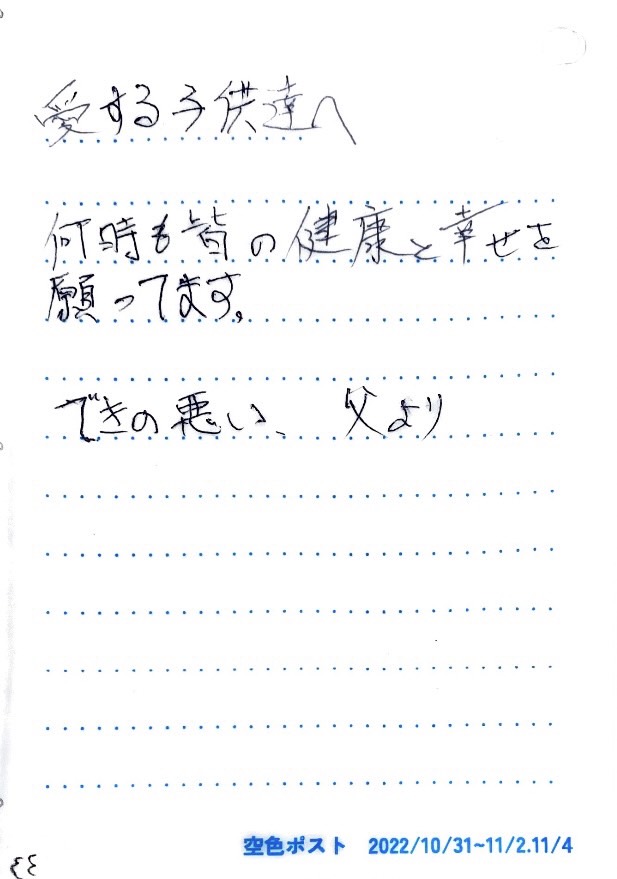 愛する子供達へ
何時も皆の健康と幸せを
願ってます。
できの悪い、 父より
空色ポスト 2022/10/31~11/2.11/4
33